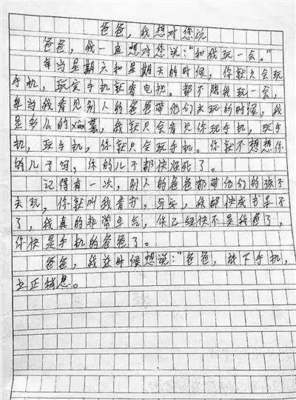 爸爸，我想对你说
爸爸，我一直想对你说："和我玩一会。"
每当星期六和星期天的时候，你就只会玩
手机，玩会手机就看电视。都不陪我玩一会，
每当我看见别人的爸爸带他们去玩的时候，我
是多么的羡慕，我就只会看见你玩手机，玩手
机，玩手机，你就只会玩手机。你就不想想你
的儿子吗，你的儿子都快疯死了。
记得有一次，别人的爸爸都带他们的孩子
去玩，你就叫我看书，写字，我都快成书呆子
了，我真的非常生气，你已经快不是我爸了，
你快是手机的爸爸了。
爸爸，我这时候想说："爸爸，放下手机，